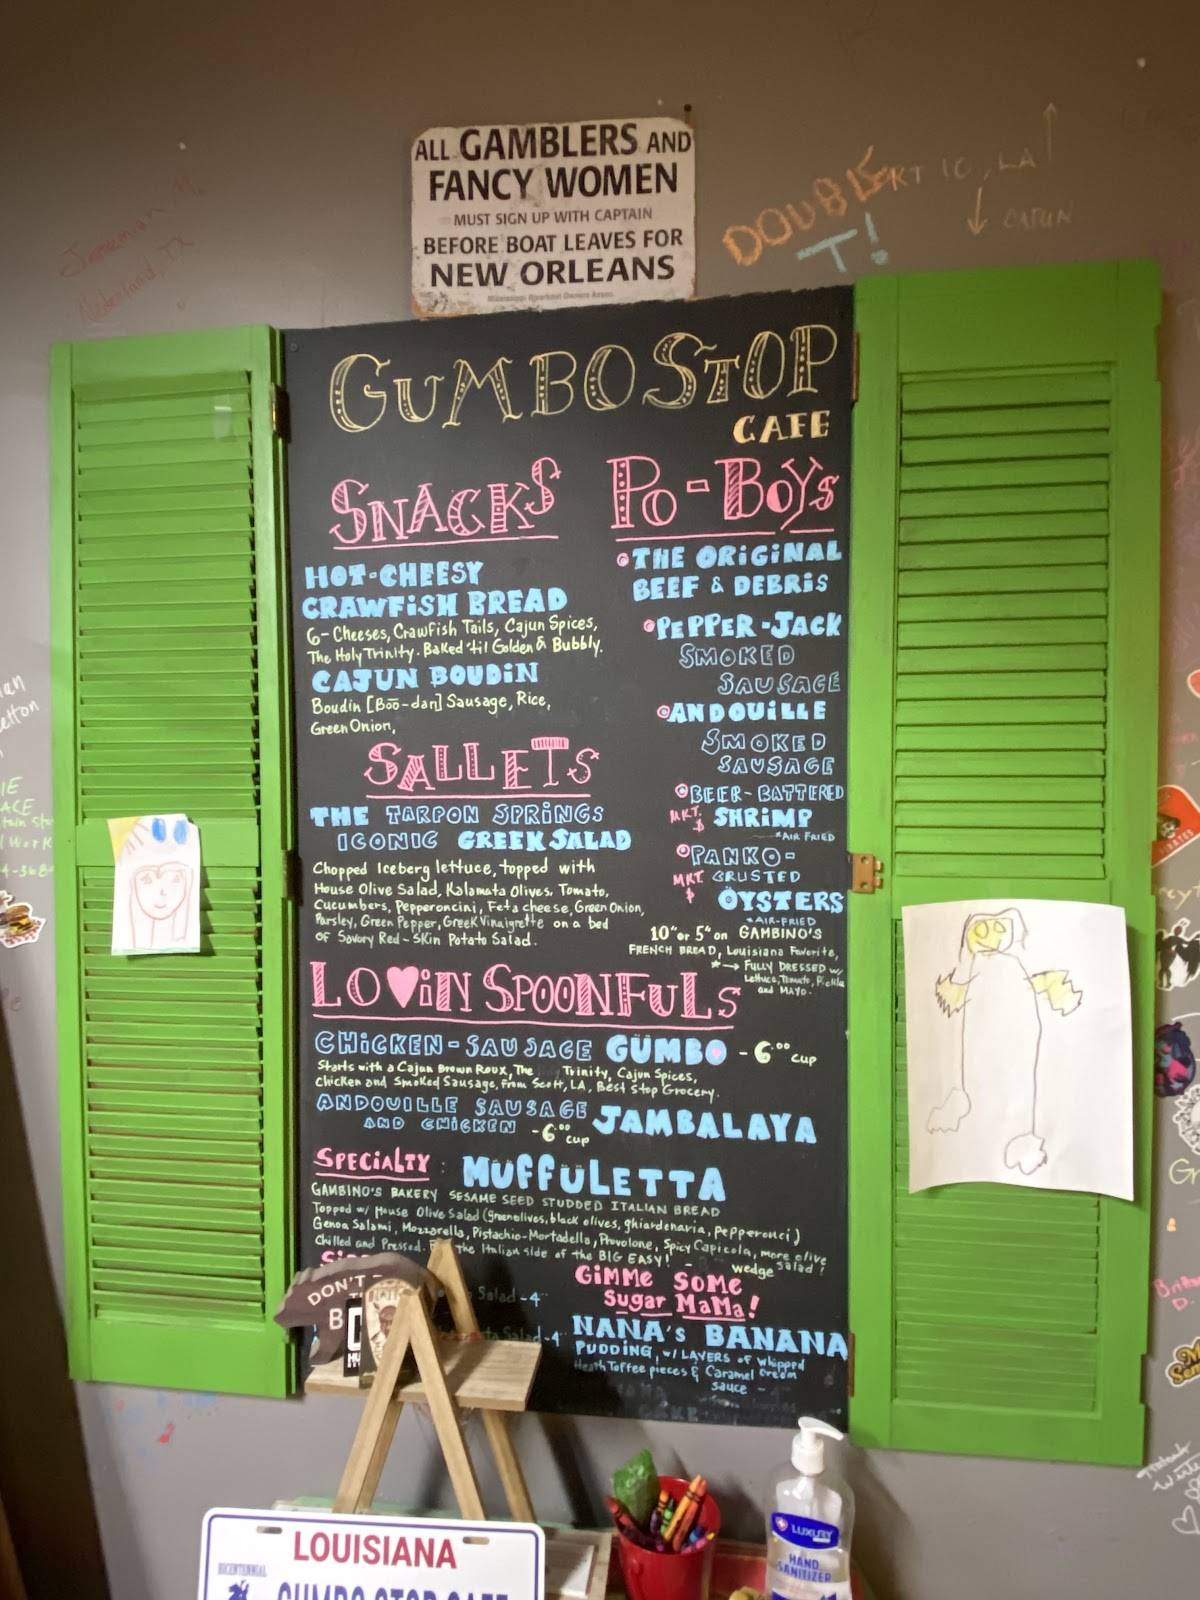 ALL GAMBLERS AND
FANCY WOMEN
MUST SIGN UP WITH CAPTAIN
BEFORE BOAT LEAVES FOR
NEW ORLEANS
DOUBLE
T!
LA
CAJUN
GUMBO STOP
CAFE
SNACKS
HOT-CHEESY
CRAWFISH BREAD
6- Cheeses, Crawfish Tails, Cajun Spices,
The Holy Trinity. Baked 'til Golden & Bubbly.
CAJUN BOUDIN
Boudin [Boo-dan] Sausage, Rice,
Green Onion,
SALLETS
THE TARPON SPRINGS
ICONIC GREEK SALAD
Chopped Iceberg lettuce, topped with
House Olive Salad, Kalamata Olives, Tomato,
Cucumbers, Pepperoncini, Feta cheese, Green Onion,
Parsley, Green Pepper, Greek Vinaigrette on a bed
of Savory Red-Skin Potato Salad.
PO-BOYS
THE ORIGINAL
BEEF & DEBRIS
PEPPER-JACK
SMOKED
SAUSAGE
ANDOUILLE
SMOKED
SAUSAGE
BEER-BATTERED
MKT. $ SHRIMP
*AIR FRIED
PANKO-
MKT. $ CRUSTED
OYSTERS
*AIR-FRIED
10" or 5" on GAMBINO'S
FRENCH BREAD, Louisiana Favorite,
*→ FULLY DRESSED w/
Lettuce, Tomato, Pickle
and MAYO.
LO♥iN SPOONFULS
CHICKEN-SAUSAGE GUMBO - 6.00 cup
Starts with a Cajun Brown Roux, The Trinity, Cajun Spices,
Chicken and Smoked Sausage, from Scott, LA, Best Stop Grocery.
ANDOUILLE SAUSAGE
AND CHICKEN - 6.00 cup JAMBALAYA
SPECIALTY: MUFFULETTA
GAMBINO'S BAKERY SESAME SEED STUDDED ITALIAN BREAD
Topped w/ House Olive Salad (green olives, black olives, ghiardenaria, pepperonci)
Genoa Salami, Mozzarella, Pistachio-Mortadello, Provolone, Spicy Capicola, more olive salad!
Chilled and Pressed. the Italian side of the BIG EASY! - wedge
Salad - 4
Salad - 4
GIMME SOME
SUGAR MAMA!
NANA'S BANANA
PUDDING, w/ LAYERS OF whipped cream
Heath Toffee pieces & Caramel
sauce -
DON'T
LOUISIANA
BICENTENNIAL
GUMBO STOP CAFE
LUXURY
HAND
SANITIZER